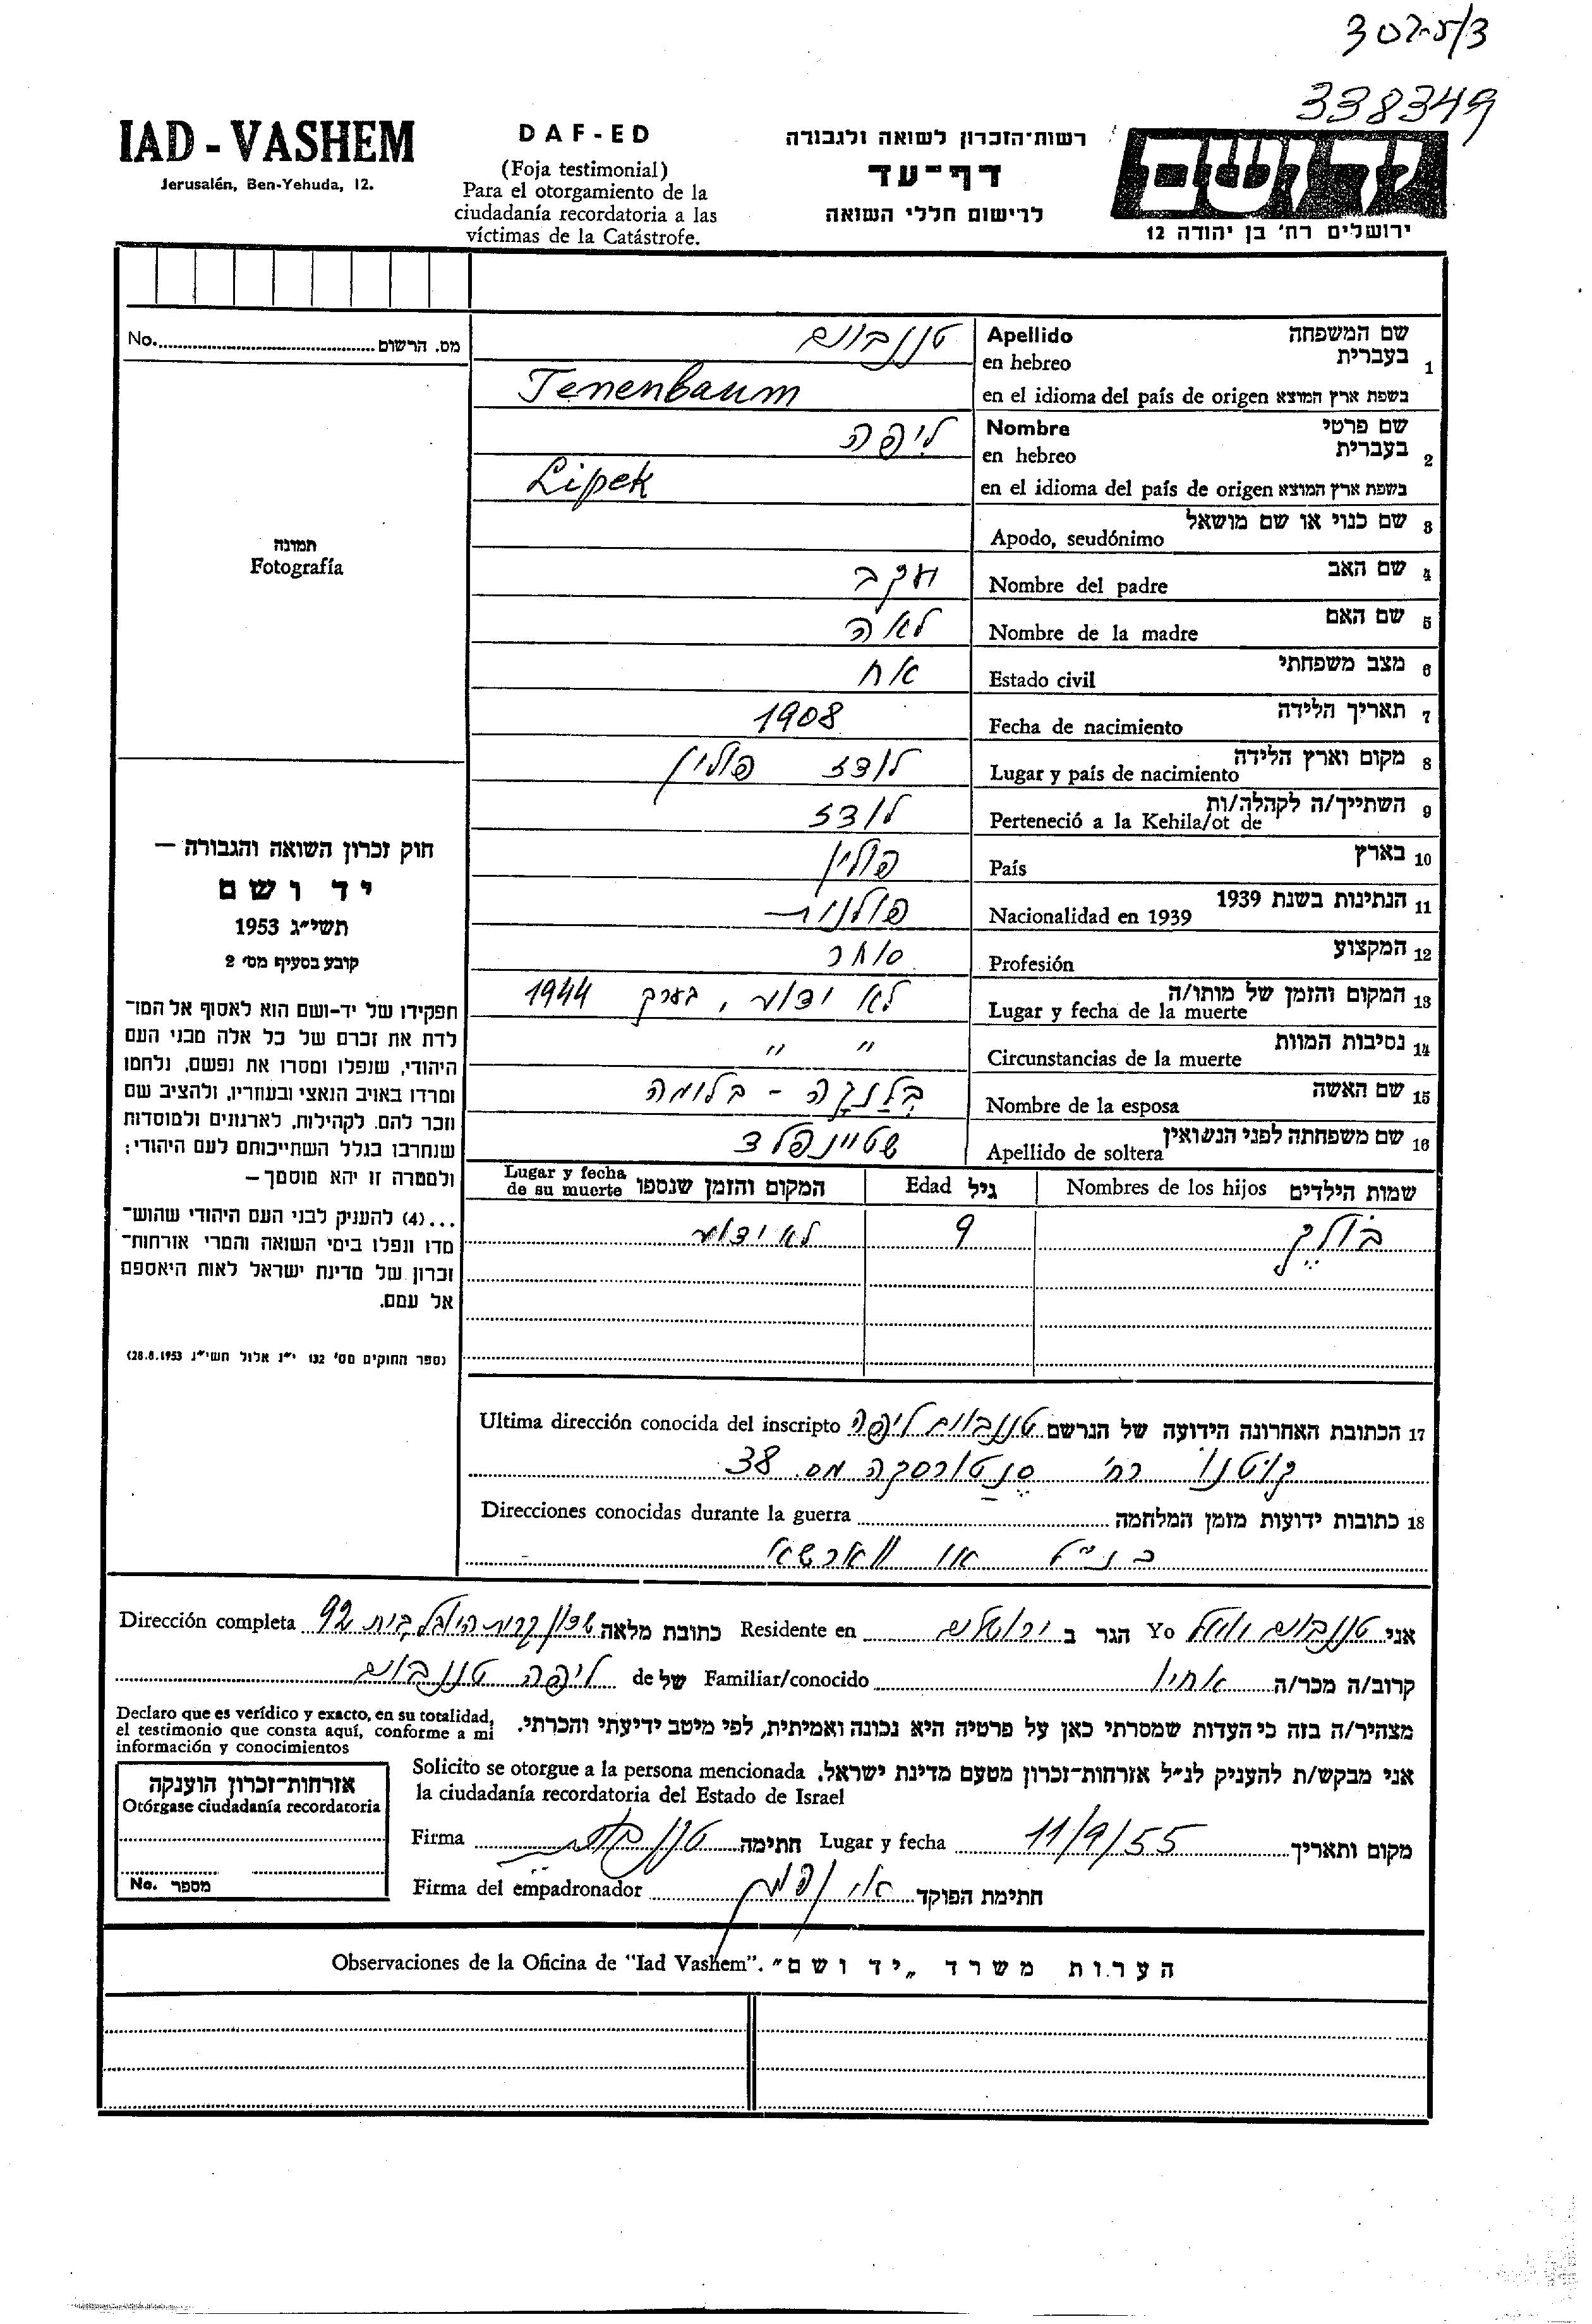 307-5/3
338349
IAD - VASHEM
Jerusalén, Ben-Yehuda, 12.
DAF-ED
(Foja testimonial)
Para el otorgamiento de la
ciudadanía recordatoria a las
víctimas de la Catástrofe.
רשות־הזכרון לשואה ולגבורה
דף־עד
לרישום חללי השואה
ידושם
ירושלים רח' בן יהודה 12
No. מס. הרשום
תמונה
Fotografía
1 שם המשפחה Apellido
בעברית en hebreo טננבוים
בשפת ארץ המוצא en el idioma del país de origen Tenenbaum
2 שם פרטי Nombre
בעברית en hebreo ליפה
בשפת ארץ המוצא en el idioma del país de origen Lipek
3 שם כנוי או שם מושאל
Apodo, seudónimo
4 שם האב
Nombre del padre יעקב
5 שם האם
Nombre de la madre לאה
6 מצב משפחתי
Estado civil אח
7 תאריך הלידה
Fecha de nacimiento 1908
8 מקום וארץ הלידה
Lugar y país de nacimiento לודז פולין
9 השתייך/ה לקהלה/ות
Perteneció a la Kehila/ot de לודז
10 בארץ
País פולין
11 הנתינות בשנת 1939
Nacionalidad en 1939 פולנית
12 המקצוע
Profesión סוחר
13 המקום והזמן של מותו/ה
Lugar y fecha de la muerte לא ידוע, בערך 1944
14 נסיבות המוות
Circunstancias de la muerte " "
15 שם האשה
Nombre de la esposa בלנקה - בלומה
16 שם משפחתה לפני הנשואין
Apellido de soltera שטיינפלד
שמות הילדים Nombres de los hijos גיל Edad המקום והזמן שנספו Lugar y fecha
de su muerte
בולק 9 לא ידוע
חוק זכרון השואה והגבורה —
יד ושם
תשי״ג 1953
קובע בסעיף מס' 2
תפקידו של יד-ושם הוא לאסוף אל המו־
לדת את זכרם של כל אלה מבני העם
היהודי, שנפלו ומסרו את נפשם, נלחמו
ומרדו באויב הנאצי ובעוזריו, ולהציב שם
וזכר להם, לקהילות, לארגונים ולמוסדות
שנחרבו בגלל השתייכותם לעם היהודי;
ולמטרה זו יהא מוסמך—
...(4) להעניק לבני העם היהודי שהוש־
מדו ונפלו בימי השואה והמרי אזרחות־
זכרון של מדינת ישראל לאות היאספם
אל עמם.
(ספר החוקים מס' 132 י״ז אלול תשי״ג 28.8.1953)
17 הכתובת האחרונה הידועה של הנרשם Ultima dirección conocida del inscripto טננבוים ליפה
קוטנו רח' סנטורסקה מס. 38
18 כתובות ידועות מזמן המלחמה Direcciones conocidas durante la guerra
כנ״ל או ווארשא
אני Yo טננבוים הגר ב Residente en ירושלים כתובת מלאה Dirección completa שכון קרית היובל בית 92
קרוב/ה מכר/ה Familiar/conocido אחיו של de ליפה טננבוים
מצהיר/ה בזה כי העדות שמסרתי כאן על פרטיה היא נכונה ואמיתית, לפי מיטב ידיעתי והכרתי.
Declaro que es verídico y exacto, en su totalidad,
el testimonio que consta aquí, conforme a mi
información y conocimientos
אני מבקש/ת להעניק לנ״ל אזרחות־זכרון מטעם מדינת ישראל.
Solicito se otorgue a la persona mencionada
la ciudadanía recordatoria del Estado de Israel
מקום ותאריך Lugar y fecha 11/9/55 חתימה Firma
חתימת הפוקד Firma del empadronador
אזרחות־זכרון הוענקה
Otórgase ciudadanía recordatoria
No. מספר
Observaciones de la Oficina de "Iad Vashem". הערות משרד „יד ושם״